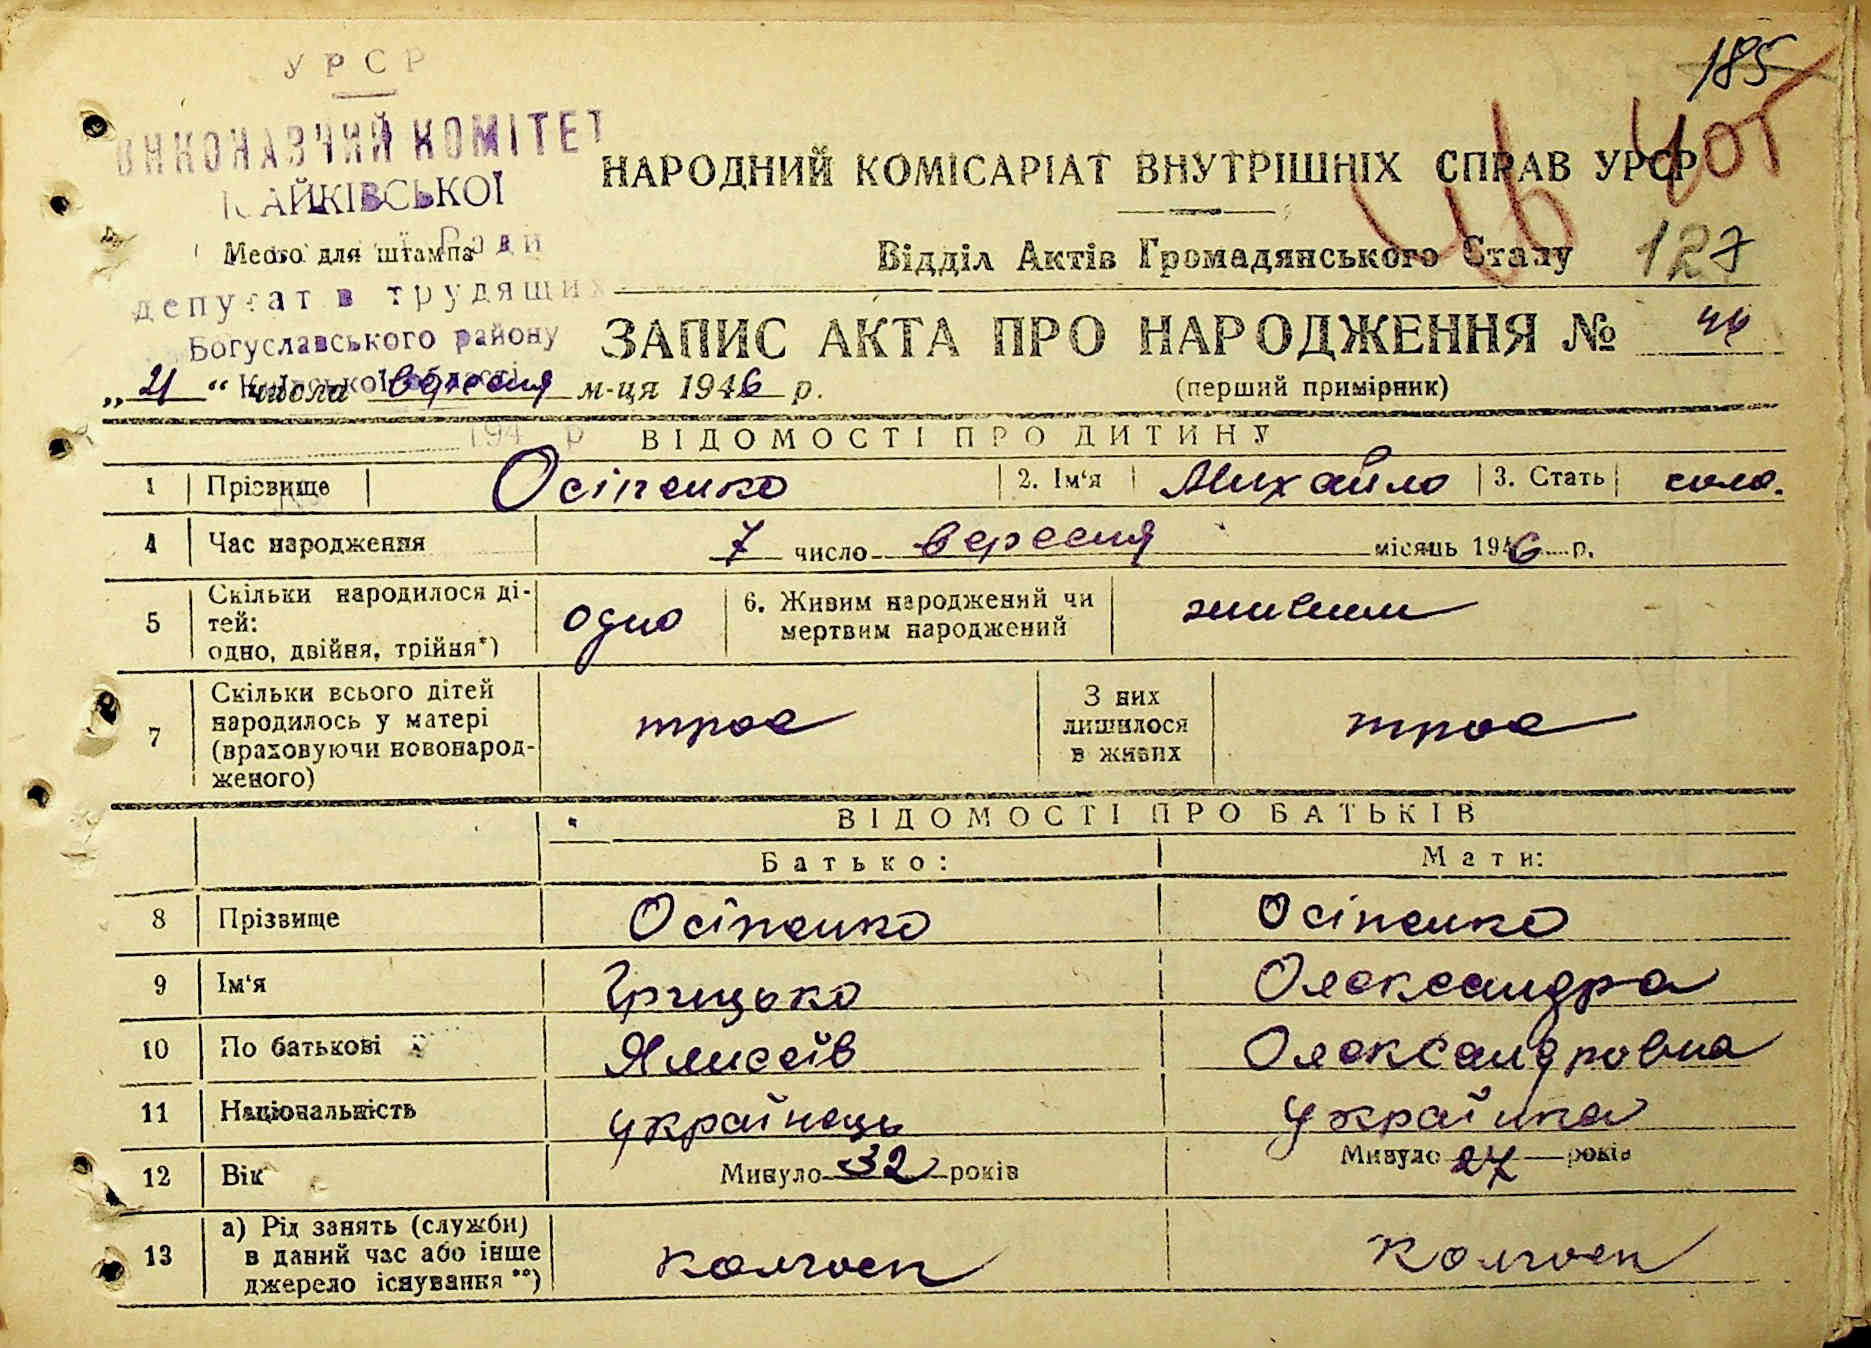 УРСР
185
ВИКОНАВЧИЙ КОМІТЕТ
НАРОДНИЙ КОМІСАРІАТ ВНУТРІШНІХ СПРАВ УРСР
46
Место для штампа
Ради
Відділ Актів Громадянського Стану
127
депутатів трудящих
Богуславського району
ЗАПИС АКТА ПРО НАРОДЖЕННЯ № 46
Київської області
„21“ числа вересня м-ця 1946 р.
(перший примірник)
194 р
ВІДОМОСТІ ПРО ДИТИНУ
1 Прізвище Осіпенко 2. Ім‘я Михайло 3. Стать
4 Час народження 7 число вересня місяць 1946 р.
5 Скільки народилося ді-
тей:
одно, двійня, трійня*)
одно
6. Живим народжений чи
мертвим народжений
живим
7 Скільки всього дітей
народилось у матері
(враховуючи новонарод-
женого)
троє
З них
лишилося
в живих
троє
ВІДОМОСТІ ПРО БАТЬКІВ
Батько: Мати:
8 Прізвище Осіпенко Осіпенко
9 Ім‘я Грицько Олександра
10 По батькові Ялисеїв Олександровна
11 Національність українець українка
12 Вік Минуло 32 років Минуло 27 років
13 а) Рід занять (служби)
в даний час або інше
джерело існування **)
колгосп колгосп